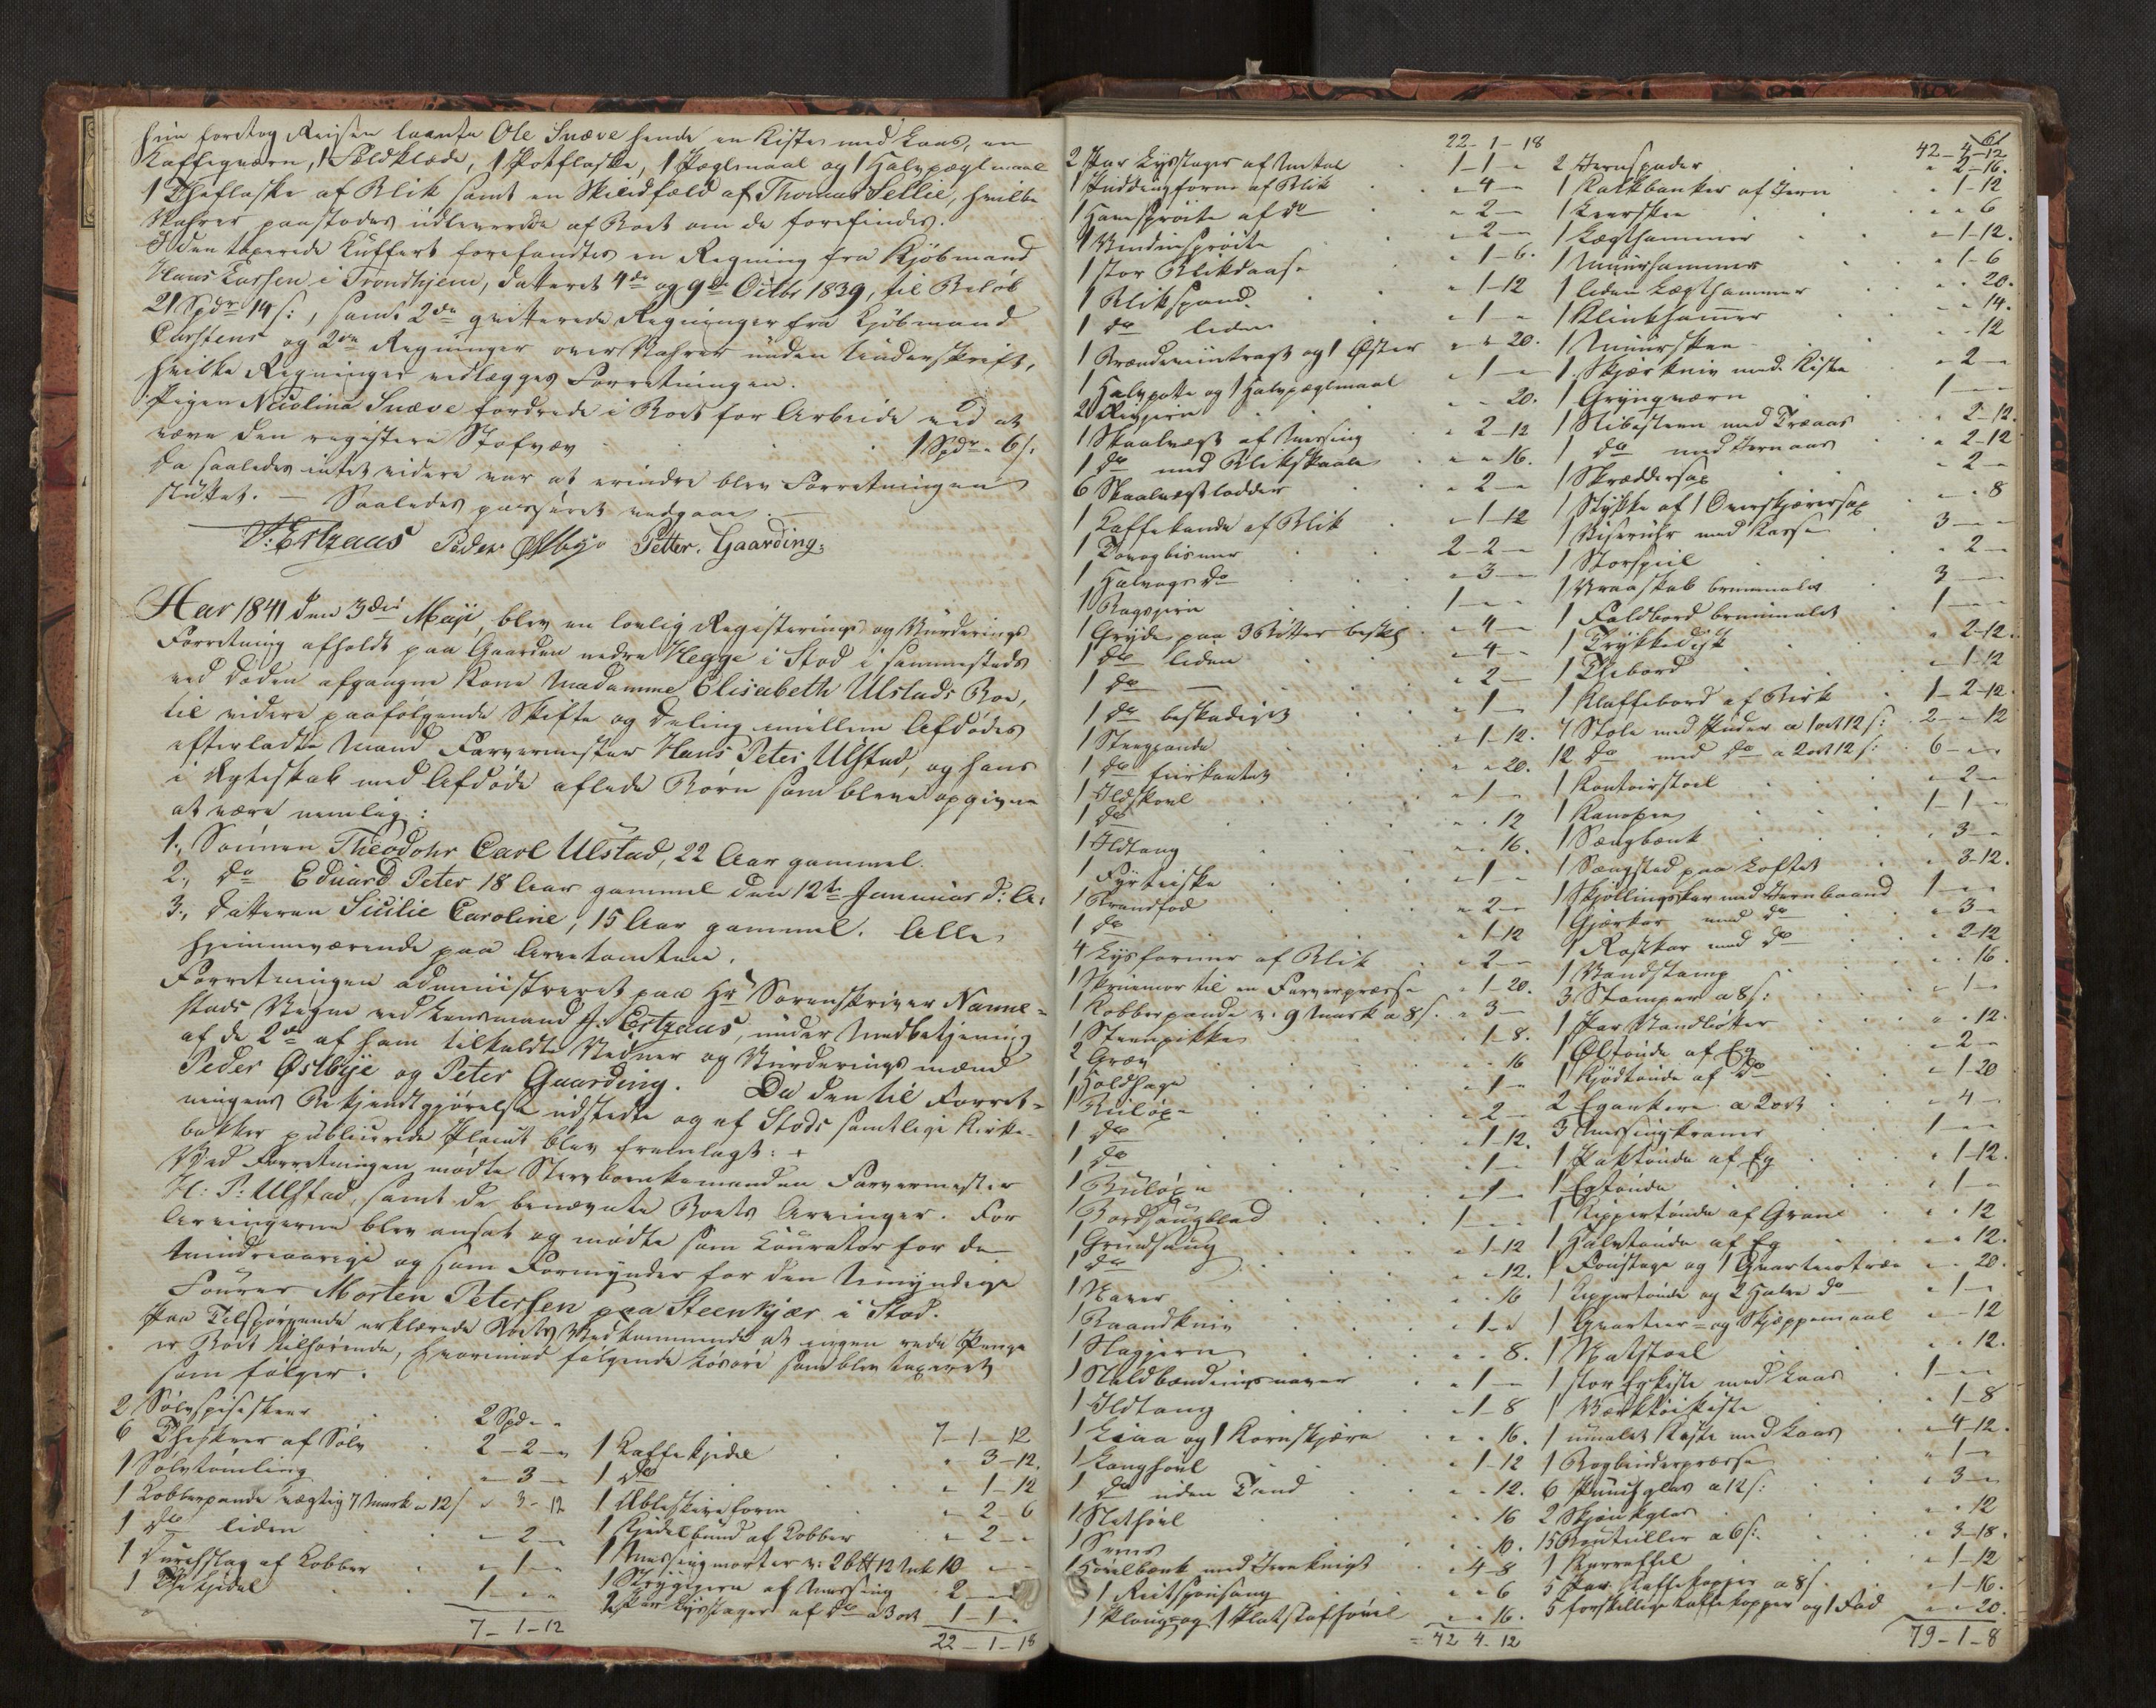 hun foretog Reisen laante Ole Snæve hende en Kiste med Laas, en
Kaffeqværn, 1 Poldklæde, 1 Potflaske, 1 Pæglmaal og 1 Halvpæglmaal
1 Theflaske af Blik samt en Skindfæld af Thomas Tellie, hvilke
Vahrer paastodes udleverede af Boet om de forefindes.
I den taxerede Kuffert forefandtes en Regning fra Kjøbmand
Hans Larsen i Trondhjem, datteret 4de og 9de Octbr 1839, til Beløb
21 Spdr 14 s:, samt 2de qvitterede Regninger fra Kjøbmand
Carstens og 2de Regninger over Vahrer uden Underskrift,
hvilke Regninger vedlægges Forretningen.
Pigen Nicolina Snæve fordrede i Boet for Arbeide ved at
væve den registrerte Stofvæv 1 Spdr „ 6 s.
Da saaledes intet videre var at erindre blev Forretningen
sluttet. – Saaledes passeret vedgaaes. –
J: Ertzaas Peder Østbye Petter Gaarding
Aar 1841 den 3die Maji, blev en lovlig Registerings og Vurderings
Forretning afholdt paa Gaarden nedre Hegge i Stod i sammesteds
ved Døden afgangne Kone Madamme Elisabeth Ulstads Boe,
til videre paafølgende Skifte og Deling imellem Afdødes
efterladte Mand Farvermester Hans Peter Ulstad, og hans
i Ægteskab med Afdøde aflede Børn som bleve opgivne
at være nemlig:
1., Sønnen Theodohr Carl Ulstad, 22 Aar gammel.
2., do Eduard Peter 18 Aar gammel den 12te Januar d: A:
3., Datteren Sicilie Caroline, 15 Aar gammel. Alle
hjemmeværende paa Arvetomten.
Forretningen administreret paa Hr Sorenskriver Nanne-
stads Vegne ved Lensmand J: Ertzaas, under Medbetjening
af de 2de af ham tilkaldte Vidner og Vurderingsmænd
Peder Østbye og Peter Gaarding. Da den til Forret-
ningens Bekjendtgjørelse udstedte og af Stods samtlige Kirke-
bakker publicerede Placat blev fremlagt: +
Ved Forretningen mødte Stervboenkemanden Farvermester
H: P: Ulstad, samt de benævnte Boets Arvinger. For
Arvingerne blev ansat og mødte som Courator for de
mindreaarige og som Formynder for den Umyndige
Fourer Morten Petersen paa Steenkjær i Stod.
Paa Tilspørgende erklærede Boets Vedkommende at ingen rede Penge
er Boet tilhørende, hvorimod følgende Løsøre som blev taxeret
som følger.
2 Sølvspiseskeer 2 Spd „ „
6 Theskeer af Sølv 2 – 2 – „
1 Sølvtømling „ – 3 – „
1 Kobberpande vægtig 7 Mark a 12 s „ 3 – 12
1 do liden „ – 2 – „
1 Durchslag af Kobber „ – 1 – „
1 Thekjedel 1 – „ „
7 – 1 – 12
7 – 1 – 12
1 Kaffekjedel „ 3 – 12.
1 do „ 1 – 12
1 Æbleskiveform „ 2 – 6
1 Kjedelbund af Kobber „ 2 – „
1 Messingmorter v: 2 B℔ 12 Mk 10 „ –
1 Strygejern af Messing 2 – „
2 Par Lysestager af do a 3 ort 1 – 1 – „
22 – 1 – 18
22 – 1 – 18
2 Par Lysstager af Metal 1 – 1 – „
1 Puddingform af Blik „ 4 – „
1 Havesprøite af do „ 2 – „
1 Vinduesprøite „ 2 – „
1 stor Blikdaase „ 1 – 6.
1 Blikspand „ 1 – 12
1 do liden „ 1 – „
1 Brændeviintragt og 1 Øster „ „ 20.
1 Halvpotte og 1 Halvpæglmaal „ 1 – „
„ „ 20.
1 Skaalvægt af Messing „ 2 – 12
1 do med Blikskaale „ „ 16.
6 Skaalvægtlodder „ 2 – „
1 Kaffekande af Blik „ 1 – 12
1 Tovogbismer 2 – 2 – „
1 Halvvogs do „ 3 – „
1 Bagejern 1 – „ „
1 Gryde paa 3 Bøtter beskd „ 4 – „
1 do liden „ 4 – „
1 do – „ 2 – „
1 do beskadiget „ 1 – „
1 Steegpande „ 1 – 12.
1 do fiirkantet „ „ 20.
1 Ildskovl „ 1 – „
1 do „ „ 12
1 Ildtang „ „ 16.
1 Fyrteiske „ 1 – „
1 Brandfod „ 2 – „
1 do „ 1 – 12
4 Lysformer af Blik „ 2 – „
1 Skruemor til en Farverpresse „ 1 – 20.
1 Kobberpande v. 9 Mark a 8 s. „ 3 –
1 Steenpikke „ 1 – 8.
2 Græv „ „ 16
1 Holdhage „ 1 – „
1 Buløxe „ 2 – „
1 do „ 1 – 12.
1 do „ 1 – „
1 Buløxe „ 1 – „
1 Bordsaugblad 1 – „ „
1 Grundsaug „ 1 – 12
1 do „ „ 12.
1 Naver „ „ 16
1 Baandkniv „ 1 – „
1 Slagjern „ „ 8.
1 Staldbændingsnaver „ 1 – „
1 Ildtang „ 1 – 8
1 Liaa og 1 Kornskjære „ „ 16.
1 Langhøvl „ 1 – 12
1 do uden Tand „ „ 12.
1 Slethøvl „ „ 16
1 Sims „ „ 10.
1 Høvelbænk med Jernknegt „ 4 – 8
1 Reitspønsaug „ „ 6
1 Plough og 1 Platstafhøvel „ „ 16.
= 42 4 – 12
61
42 – 4 – 12
2 Jernspader „ 2 – 16.
1 Kalkbanker af Jern „ 1 – 12
1 Leerskee „ „ 6
1 Lægthammer „ 1 – 12.
1 Muurhammer „ 1 – 6
1 liden Lægthammer „ „ 20.
1 Klinkhammer „ „ 14.
1 Muurskee „ „ 12
1 Skjærkniv med Kiste „ 2 – „
1 Grynqværn 1 – „ „
1 Slibesteen med Træaas „ 2 – 12.
1 do med Jernaas „ 2 – 12
1 Skræddersax „ 2 – „
1 Stykke af 1 Overskjærersax „ „ 8
1 Viseruhr med Kasse 3 – „ „
1 Storspeil „ 2 – „
1 Vraaskab brunmalet 3 – „
1 Foldbord brunmalet 1 – „ „
1 Trykkedisk „ 2 – 12.
1 Thebord „ 1 – 12
1 Klaffebord af Birk 1 – 2 – 12.
7 Stole med Puder a 1 ort 12 s: 2 – „ 12
12 do med do a 2 ort 12 s: 6 – „ „
1 Kontoirstoel „ 2 – „
1 Kanapee 1 – 1 – „
1 Sængbænk „ 3 – „
1 Sængsted paa Loftet „ 3 – 12.
1 Skjøllingskar med Jernbaand 1 – „ „
1 Gjærkar med do „ 3 – „
1 Rostkar med do „ 2 – 12
1 Vandstamp „ „ 16.
3 Stamper a 8 s: „ 1 – „
1 Par Vandbøtter „ „ 12.
1 Øltønde af Eg „ 2 – „
1 Kjødtønde af do „ 1 – 20
2 Egankere a 2 ort „ 4 – „
3 Messingkraner 1 – „ „
1 Paktønde af Eg „ 1 – 12.
1 Egtønde „ 1 – „
1 Kippertønde af Grane „ „ 12
1 Halvtønde af Eg „ „ 12.
1 Foustage og 1 Quarteertræe „ „ 20.
1 Kippertønde og 2 Halve do „ 1 – „
1 Quarteer- og Skjæppemaal „ „ 12
1 Natstoel „ „ 12.
1 stor Egkiste med Laas 1 – „ „
1 Værktøikiste „ 1 – 8
1 umalet Kiste med Laas „ 4 – 12.
1 Bogbinderpresse „ 1 – „
6 Punschglas a 12 s: „ 3 – „
2 Skjænkglas „ „ 12
15 Boutteiller a 6 s: „ 3 – 18.
1 Karraffel „ 1 – 12
5 Par Kaffekopper a 8 s. „ 1 – 16.
5 forskjellige Kaffekopper og 1 Fad „ „ 20.
79 – 1 – 8